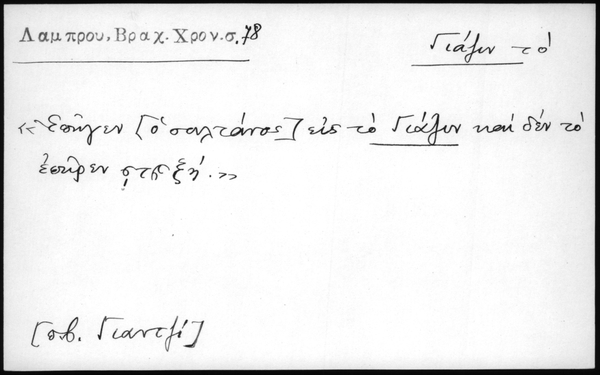 Λαμπρου, Βραχ. Χρον. σ. 78
Γιάλιν τό
«Ἐπῆγεν [ὁ σαλτάνος] εἰς τό Γιάλιν καί δέν τό
ἐπῆρεν
[πβ. Γιαντζί]